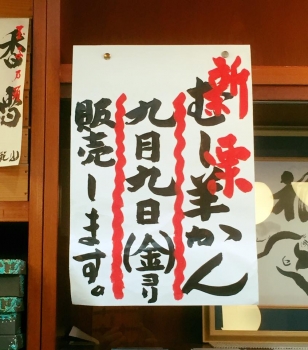 新栗
むし羊かん
九月九日(金)より
販売します。
香雪